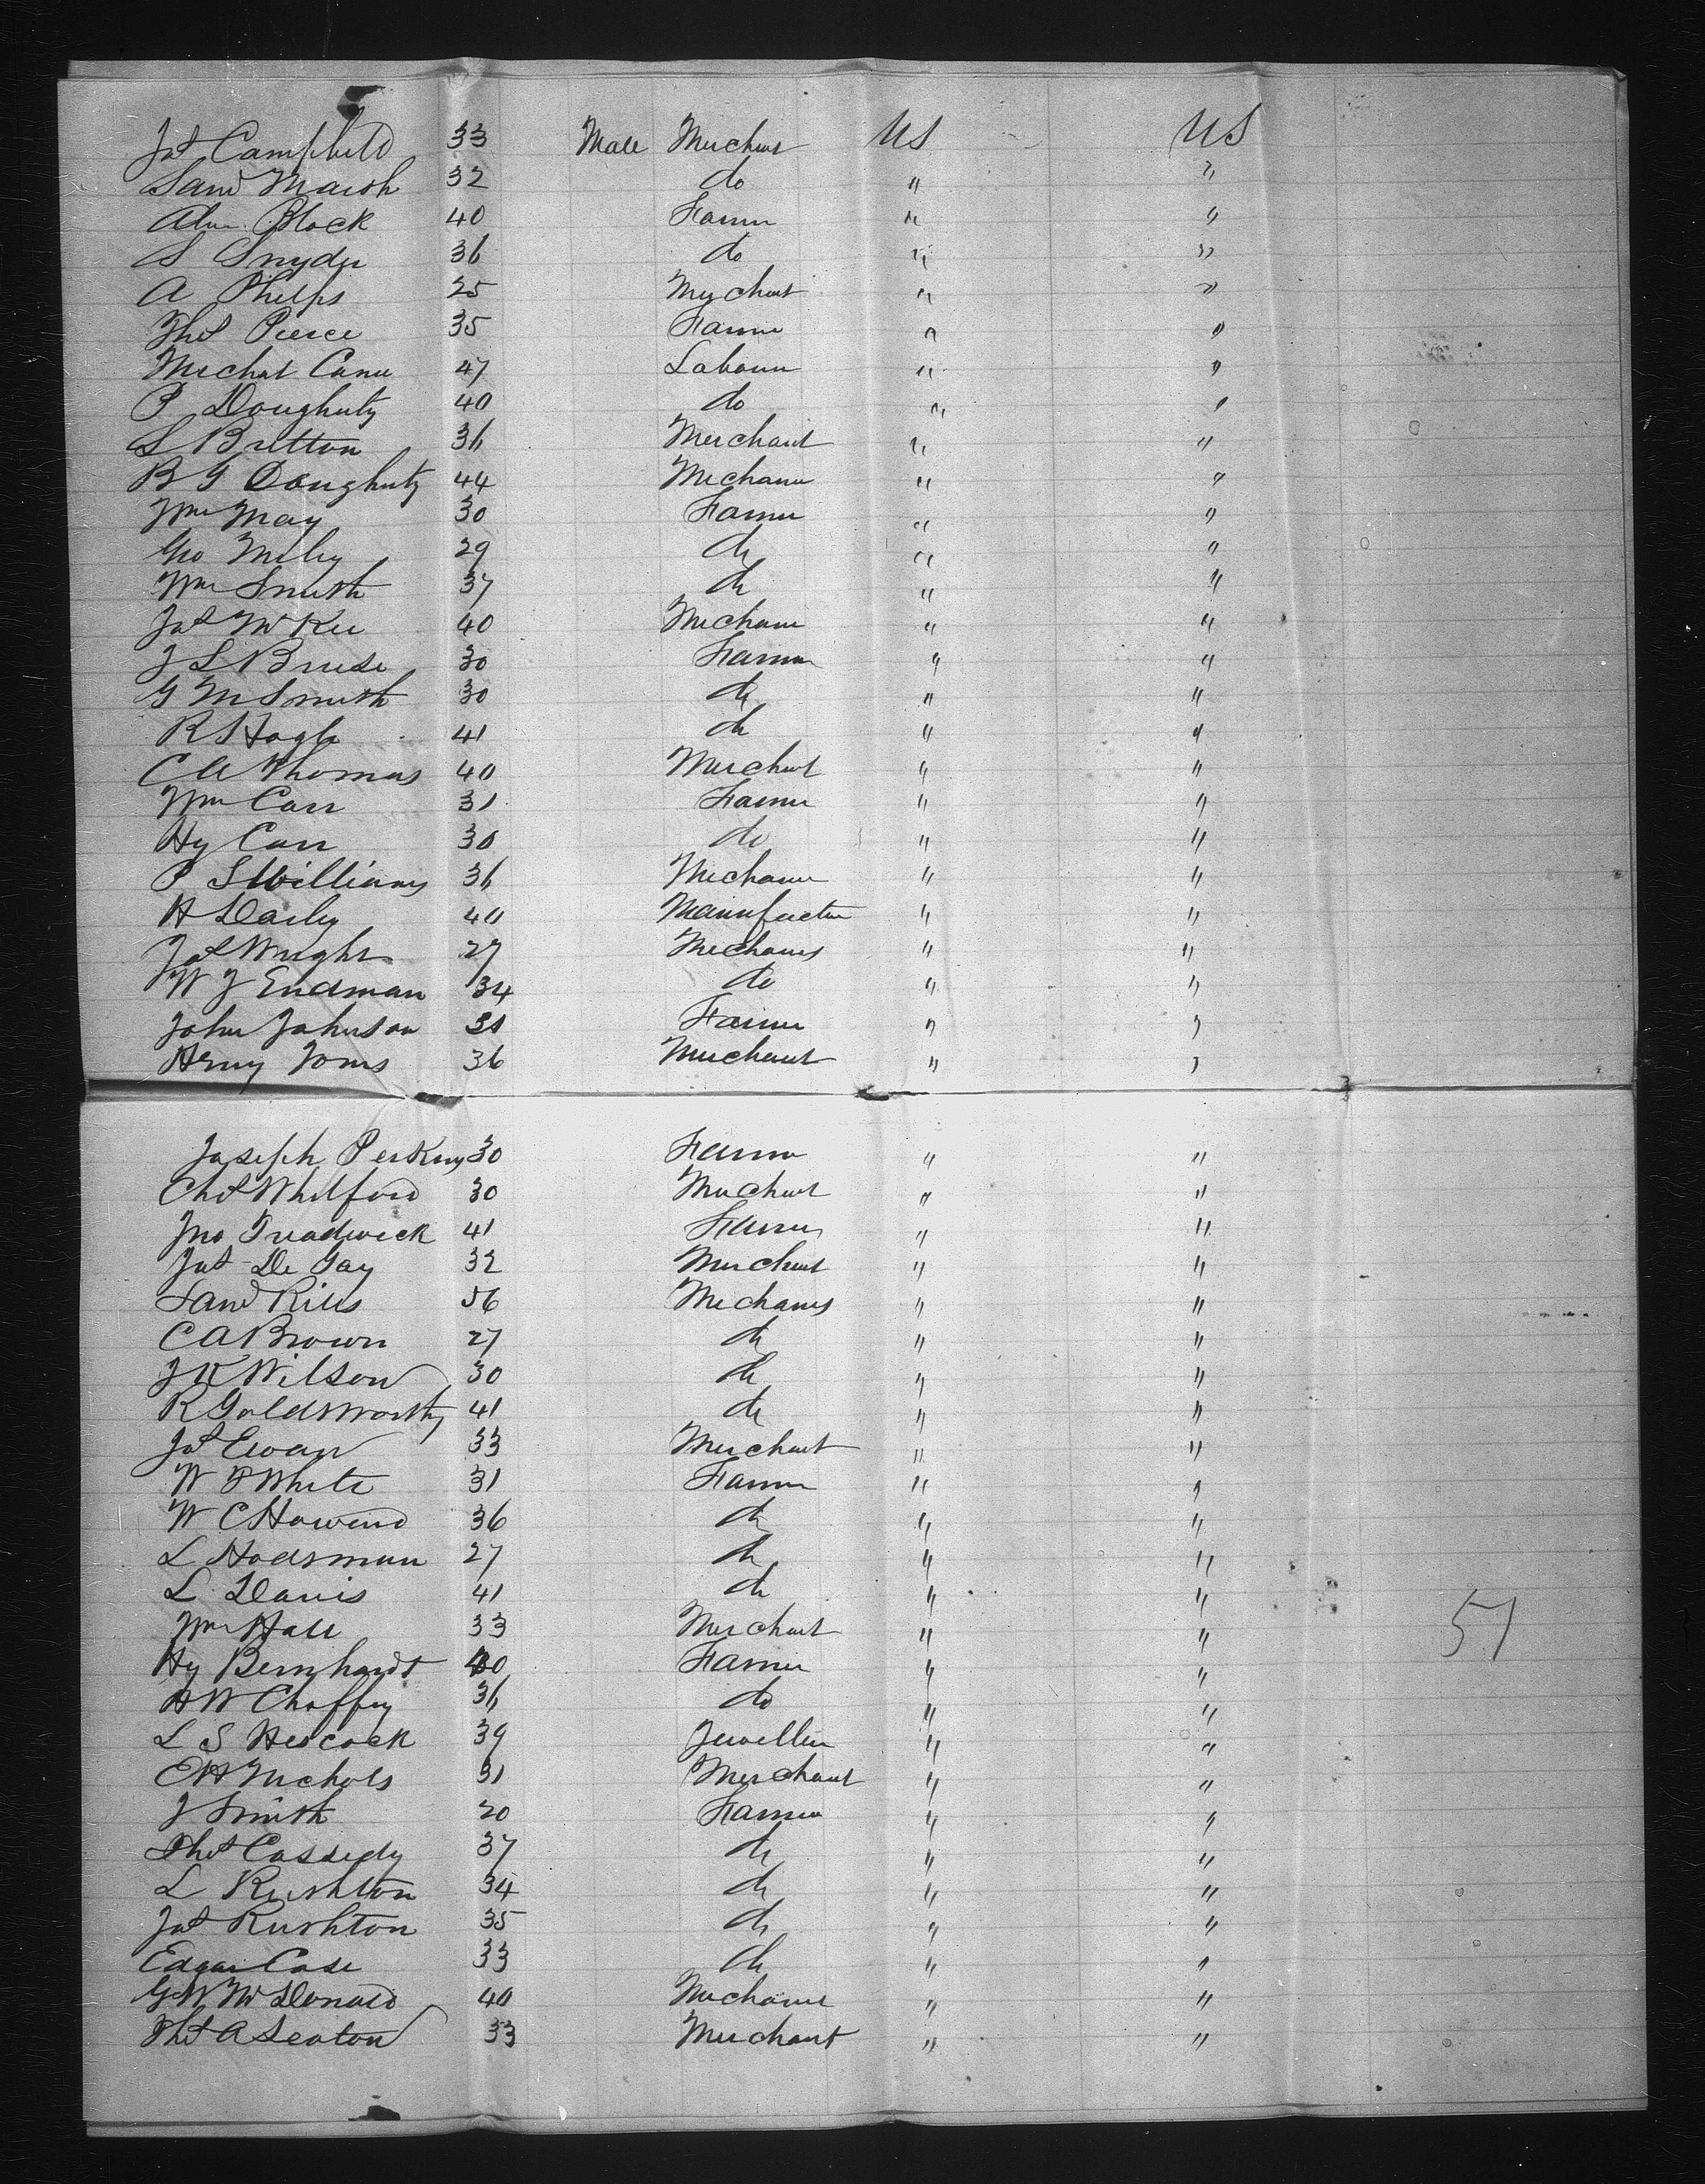 Jas Campbell 33 Male Merchant US US
Saml Marsh 32 do " "
Alex Block 40 Farmer " "
S Snyder 36 do " "
A Phelps 25 Merchant " "
Thos Pierce 35 Farmer " "
Michal Cane 47 Labourer " "
P Doughuty 40 do " "
S Britton 36 Merchant " "
B G Doughuty 44 Mechanic " "
Wm May 30 Farmer " "
Geo Miley 29 do " "
Wm Smith 37 do " "
Jas McKee 40 Mechanic " "
J S Bruse 30 Farmer " "
G M Smith 30 do " "
R S Hogle 41 do " "
C A Thomas 40 Merchant " "
Wm Carr 31 Farmer " "
Hy Carr 30 do " "
P S Williams 36 Mechanic " "
H Daily 40 Manufactur " "
Jas Wright 27 Mechanic " "
W J Endman 34 do " "
John Johnson 31 Farmer " "
Henry Toms 36 Merchant " "
Joseph Perkins 30 Farmer " "
Chas Whitford 30 Merchant " "
Jno Treadwick 41 Farmer " "
Jas De Gay 32 Merchant " "
Saml Riles 56 Mechanic " "
C A Brown 27 do " "
J K Wilson 30 do " "
R Goldsworthy 41 do " "
Jas Ewan 33 Merchant " "
W P White 31 Farmer " "
W C Howend 36 do " "
L Hodsman 27 do " "
L Davis 41 do " "
Wm Hall 33 Merchant " "
Hy Bernhardt 40 Farmer " "
H W Choffey 36 do " "
L S Hescock 39 Jeweller " "
E H Nichols 31 Merchant " "
J Smith 20 Farmer " "
Thos Cassedy 37 do " "
L Rushton 34 do " "
Jas Rushton 35 do " "
Edgar Case 33 do " "
G W McDonald 40 Mechanic " "
Thos A Seaton 33 Merchant " "
51